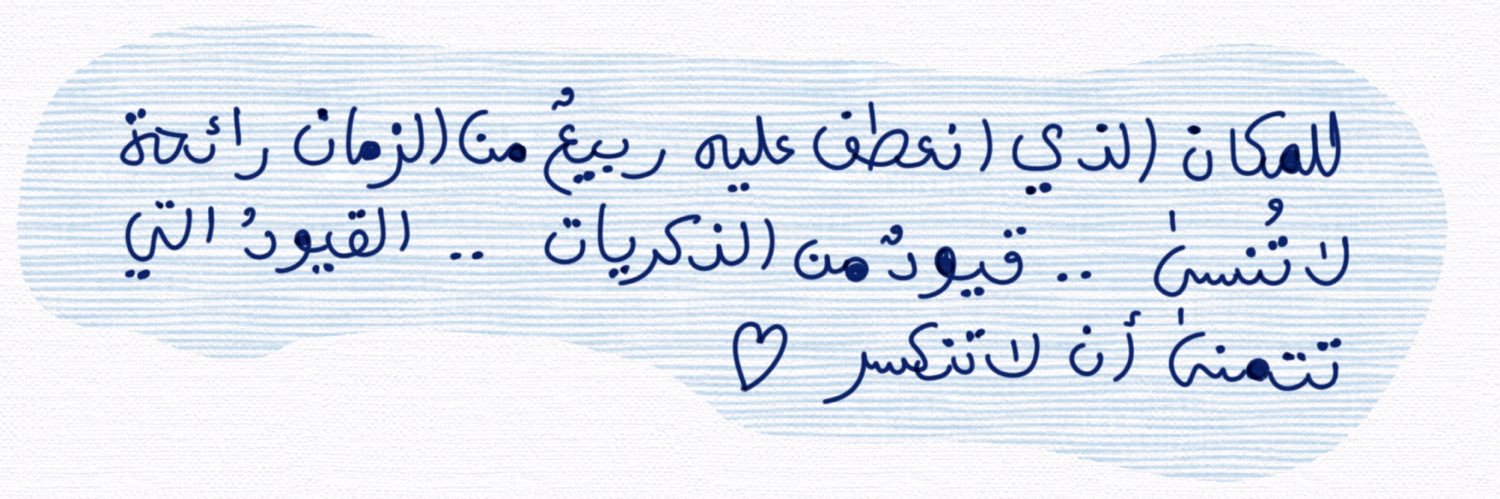 للمكان الذي انعطف عليه ربيعٌ من الزمان رائحة
لا تُنسىٰ .. قيودٌ من الذكريات .. القيودُ التي
تتمنىٰ أن لا تنكسر ♡